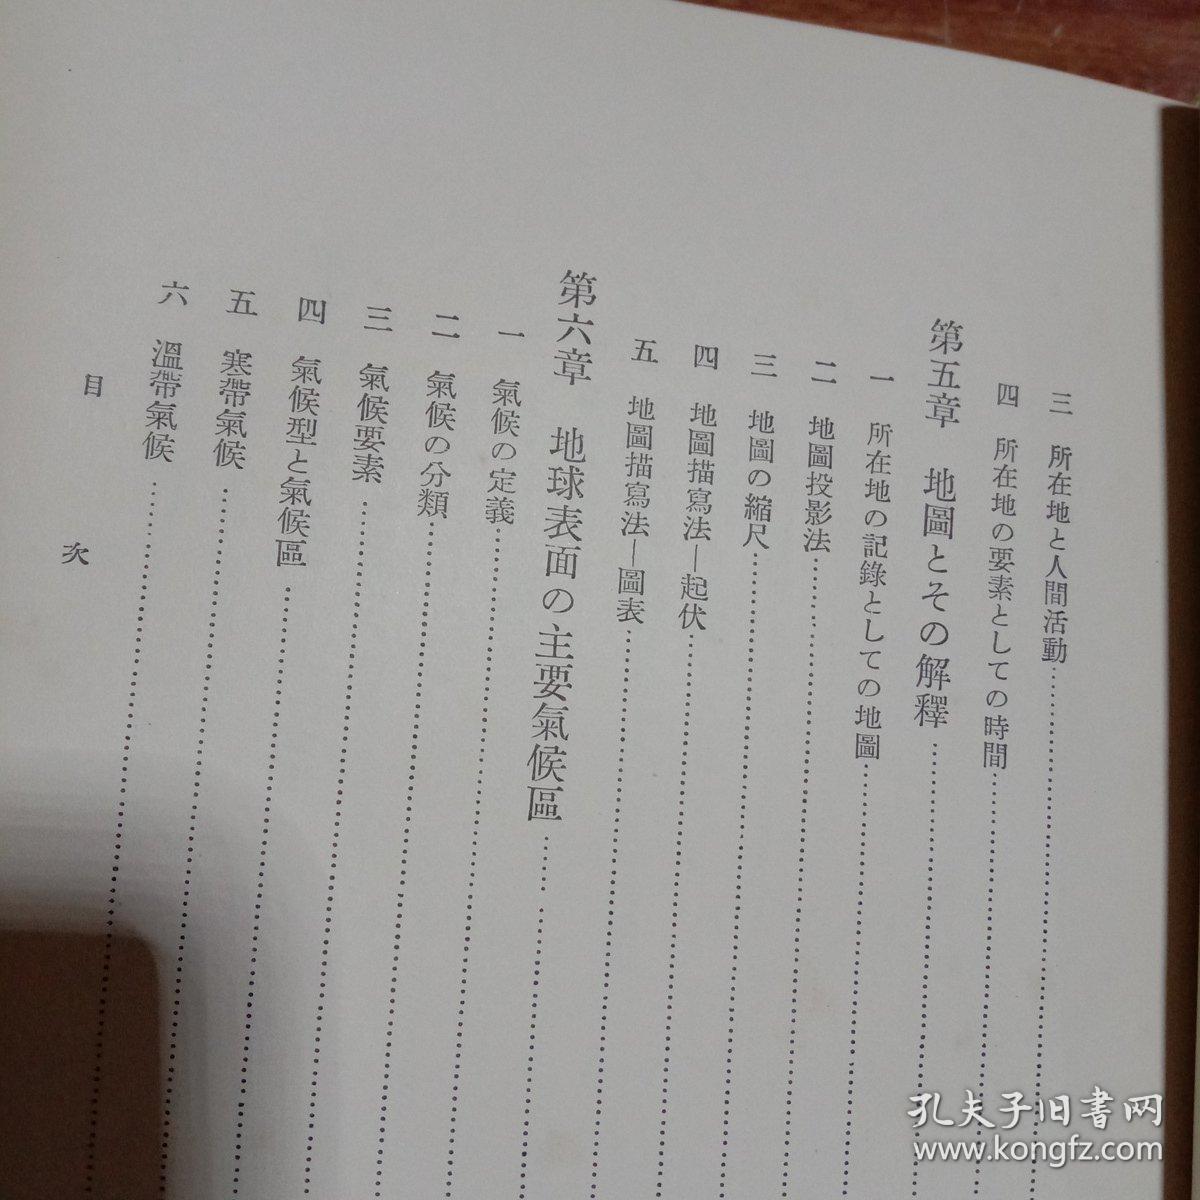 三 所在地と人間活動
四 所在地の要素としての時間
第五章 地圖とその解釋
一 所在地の記錄としての地圖
二 地圖投影法
三 地圖の縮尺
四 地圖描寫法—起伏
五 地圖描寫法—圖表
第六章 地球表面の主要氣候區
一 氣候の定義
二 氣候の分類
三 氣候要素
四 氣候型と氣候區
五 寒帶氣候
六 溫帶氣候
目次
孔夫子旧书网
www.kongfz.com